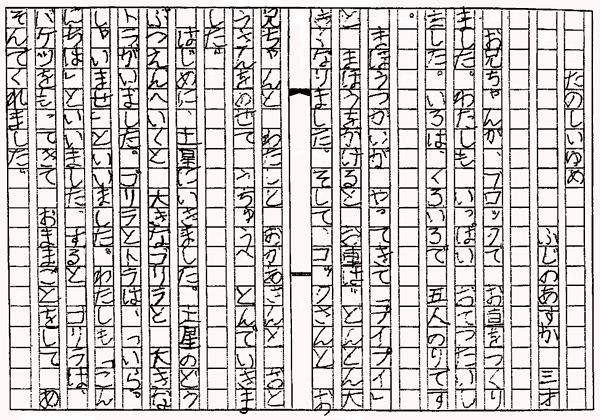 たのしいゆめ
ふじのあすか　三才
お兄ちゃんが、ブロックで　お車をつくり
ました。わたしも　いっぱい　てつだいし
ました。いろは、くろいろで　五人のりです
。
まほうつかいが　やってきて「プイプイ」
と　まほうをかけると　お車は　どんどん大
きくなりました。そして、コックさんと　お
兄ちゃんと　わたしと　おかあさんと　おと
うさんをのせて　うちゅうへ　とんでいきま
した。
はじめに、土星にいきました。土星のどう
ぶつえんへいくと　大きなゴリラと　大きな
トラがいました。ゴリラとトラは、「いら。
しゃいませ」といいました。わたしも「こん
にちは」といいました。すると　ゴリラは、
バケツをもってきて　おままごとをして　あ
そんでくれました。